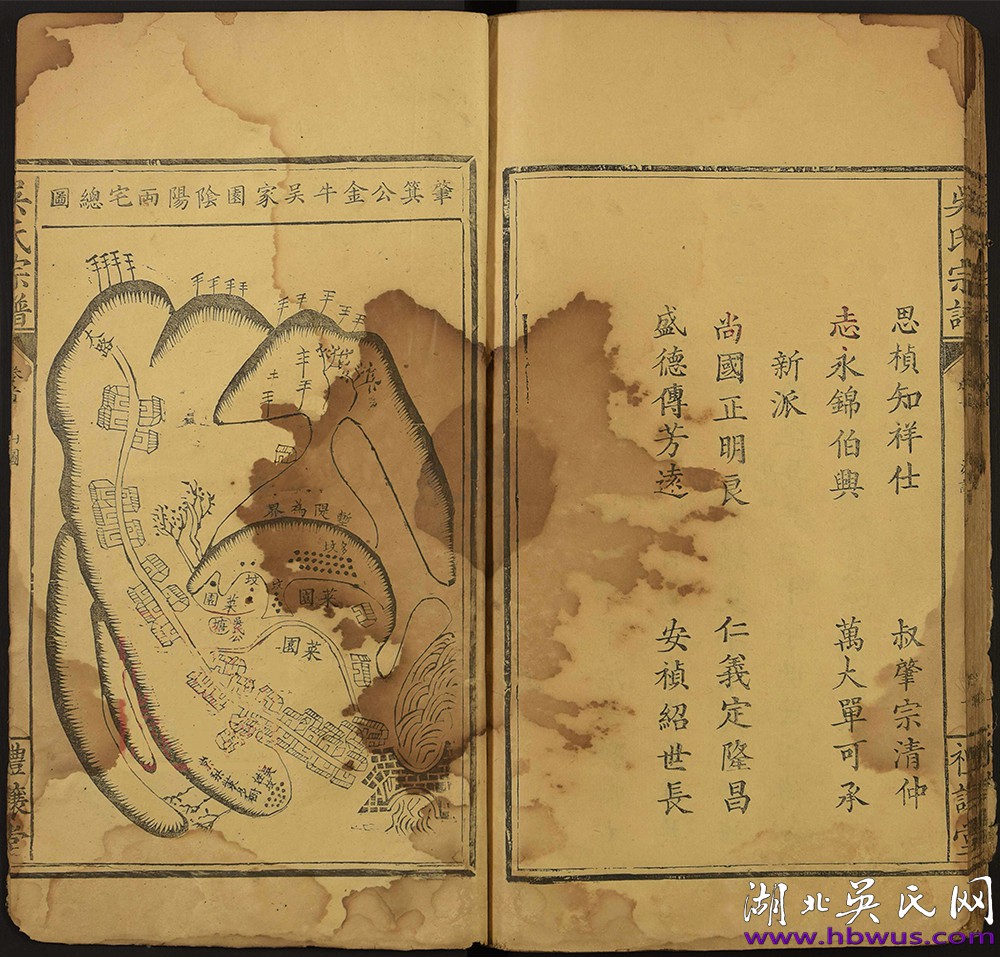 吳氏宗譜
思楨知祥仕　叔肇宗清仲
志永錦伯興　萬大單可承
新派
尚國正明良　仁義定隆昌
盛德傳芳遠　安禎紹世長
肇箕公金牛吴家園陰陽兩宅總圖
吳氏宗譜
禮讓堂
暫隄為界
坟
菜園
坟
菜園
菜園
湖北吴氏网
www.hbwus.com